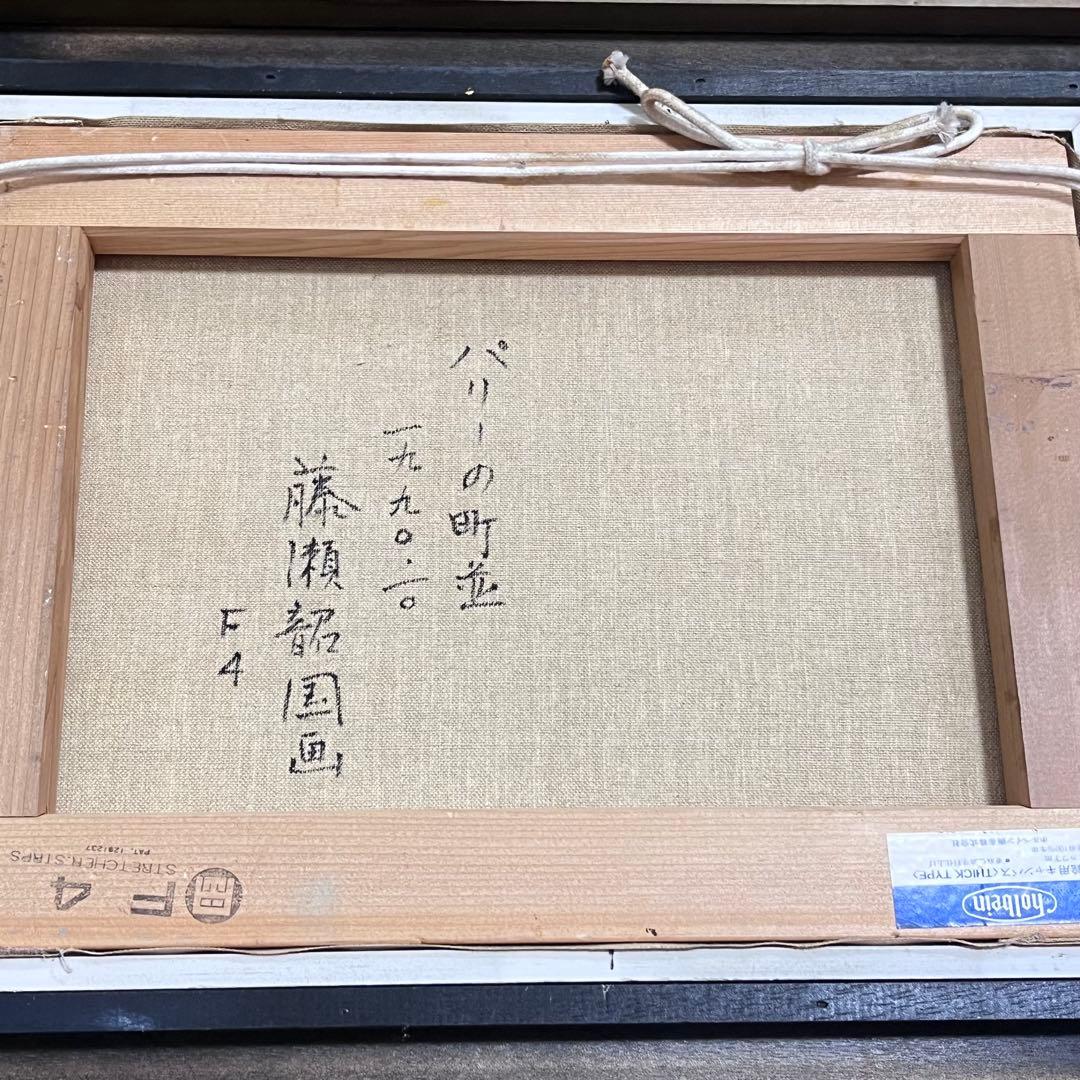 パリーの町並
一九九〇.一〇
藤瀬韶国画
F4
STRETCHER-STRPS
PAT. 1291237
F4
holbein
油絵用キャンバス〈THICK TYPE〉
ホルベイン画材株式会社